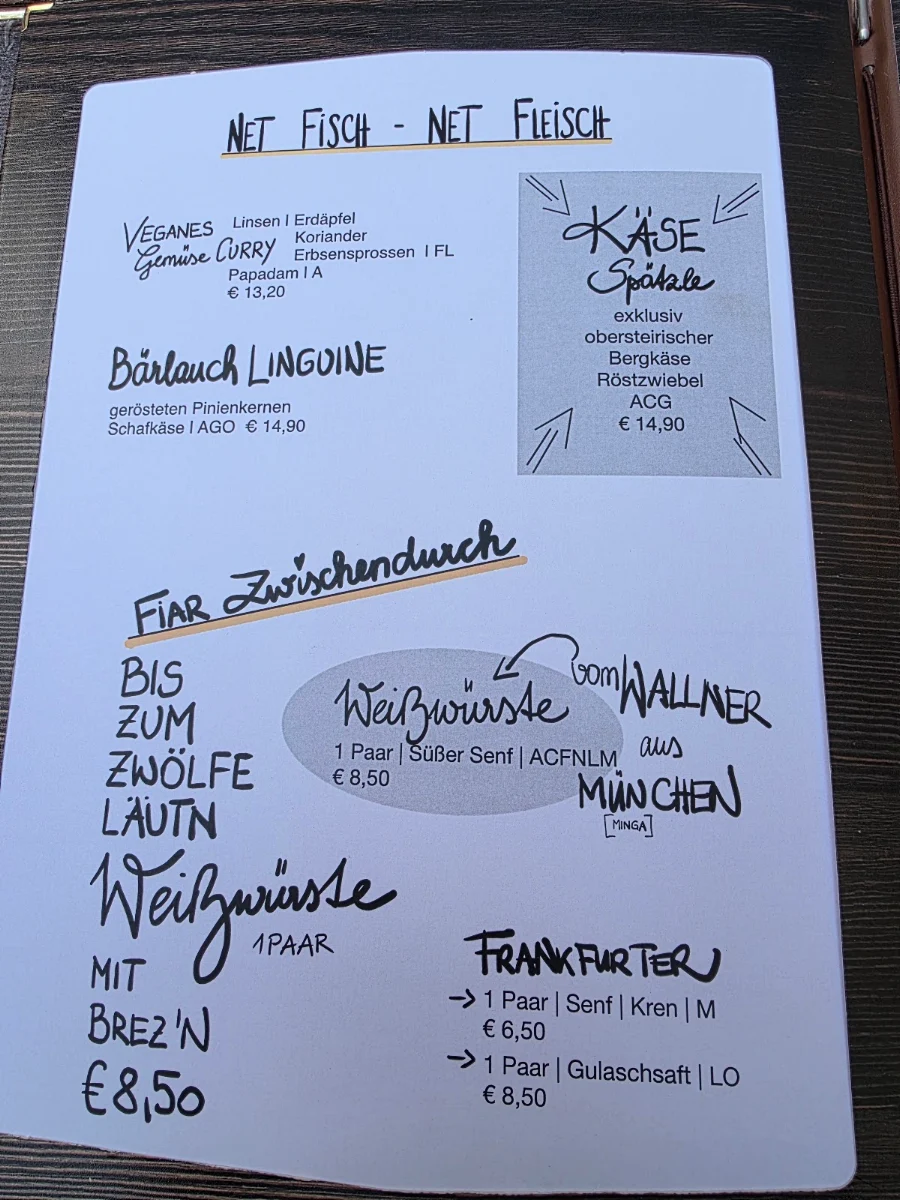 NET FISCH - NET FLEISCH
VEGANES Gemüse CURRY
Linsen | Erdäpfel
Koriander
Erbsensprossen | FL
Papadam | A
€ 13,20
KÄSE
Spätzle
exklusiv
obersteirischer
Bergkäse
Röstzwiebel
ACG
€ 14,90
Bärlauch LINGUINE
gerösteten Pinienkernen
Schafkäse | AGO € 14,90
FIAR Zwischendurch
BIS
ZUM
ZWÖLFE
LÄUTN
Weißwürste
1 PAAR
MIT
BREZ'N
€ 8,50
Weißwürste
1 Paar | Süßer Senf | ACFNLM
€ 8,50
vom WALLNER
aus
MÜNCHEN
[MINGA]
FRANKFURTER
→ 1 Paar | Senf | Kren | M
€ 6,50
→ 1 Paar | Gulaschsaft | LO
€ 8,50